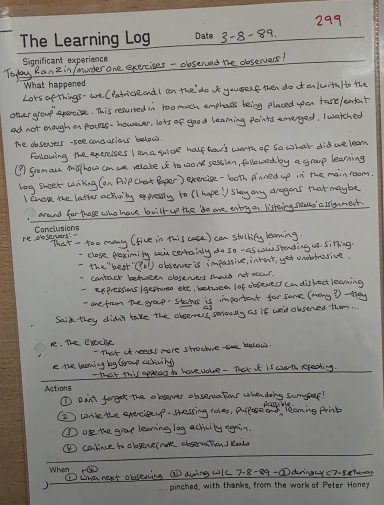 299
The Learning Log
Date 3-8-89.
Significant experience
Today Ran Zin/murder one exercises - observed the observers!
What happened
Lots of things - we (Patrick and I on the 'do it yourself then do it on/with/to the
other group' exercise. This resulted in too much emphasis being placed upon task/content
and not enough on process - however, lots of good learning points emerged, I watched
the observers - see conclusions below.
Following the exercises I ran a quick half hours worth of so what did we learn
(?) from all this/how can we relate it to work session, followed by a group learning
log sheet writing (on flip chart paper) exercise - both pinned up in the main room.
I chose the latter activity expressly to (I hope!) slay any dragons that maybe
around for those who have built up the 'do one entry on listening skills' assignment.
Conclusions
re. observers:-
That - too many (five in this case) can stultify learning.
- close proximity will certainly do so - as will standing vs. sitting.
- the "best" (?!) observer is impassive, intent, yet unobtrusive.
- contact between observers should not occur.
- expressions/gestures etc. between/of observers can distract learning
- one from the group - status is important for some (many?) - they
said they didn't take the observers seriously as if we'd observed them...
re. the Exercise
- That it needs more structure - see below.
re. the learning log (group activity)
- that this appears to have value - that it is worth repeating.
Actions
① Don't forget the observer observations when doing so myself!
② Write the exercise up - stressing roles, purpose and possible learning points
③ Use the group learning log activity again.
④ Continue to observe/note observations/
When
① When next observing ② during W/C 7-8-89 - ③ during W/C 7-8-89
.... pinched, with thanks, from the work of Peter Honey